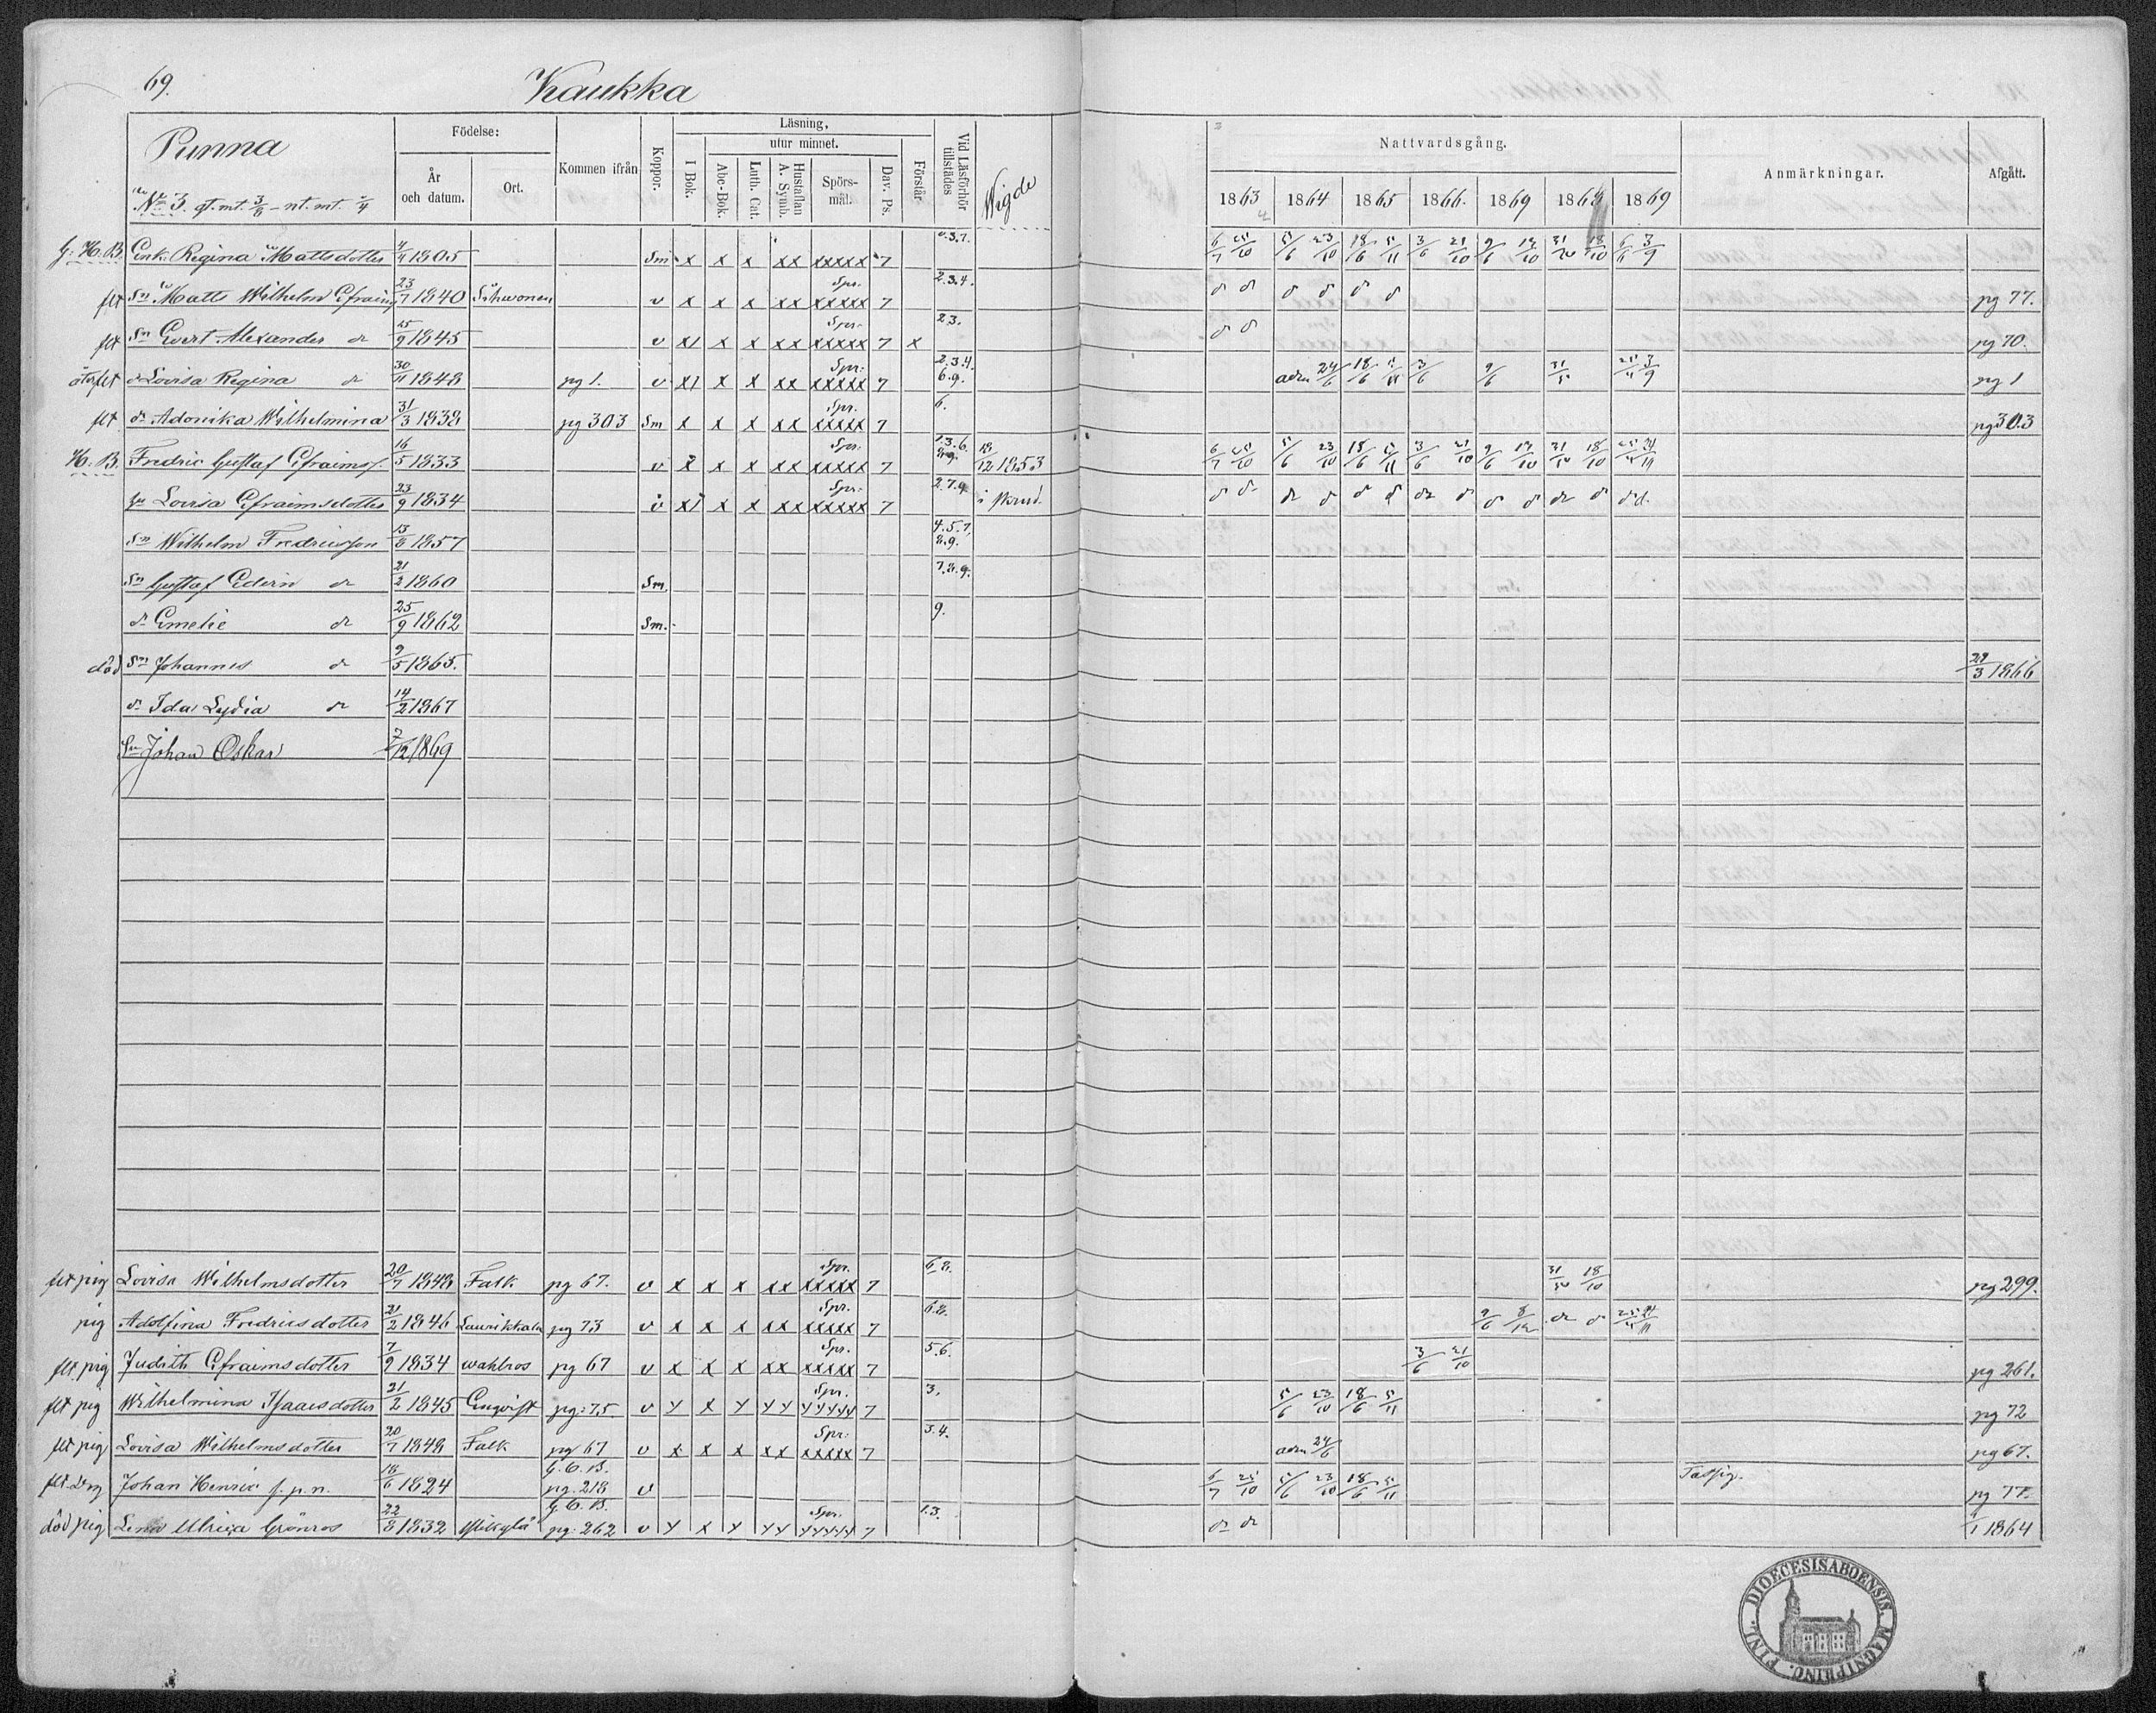 69. Kaukka
Punna
No 3. gt. mt. 3/8 - nt. mt. 1/4
Födelse: År och datum. Ort. Kommen ifrån Koppor. Läsning, I Bok. utur minnet. Abc-Bok. Luth. Cat. Hustaflan A. Symb. Spörsmål. Dav. Ps. Förstår Vid Läsförhör tillstädes Wigde
Nattvardsgång. 1863 1864 1865 1866. 1869 1869 Anmärkningar. Afgått.
G: H. B. Enk. Regina Mattsdotter 4/4 1805 Sm x x x xx xxxxx 7 6/7 25/10 5/6 23/10 18/6 5/11 3/6 21/10 9/6 31/ 18/10 6/6 3/9
flt Sn Matts Wilhelm Efraimss 23/7 1840 Sihvonen v x x x xx Spr. xxxxx 7 2.3.4. pg 77.
flt Sn Evert Alexander do 25/9 1845 v x x x xx Spr. xxxxx 7 x 2.3. pg 70.
återflt dr Lovisa Regina do 30/11 1848 pg 1. v x x x xx Spr. xxxxx 7 2.3.4. 6.9. adm 24/6 18/6 5/11 3/6 9/6 31/5 3/9 pg 1
flt dr Adonika Wilhelmina 31/3 1838 pg 303 Sm x x x xx Spr. xxxxx 7 6. pg 303
H: B. Fredric Gustaf Efraimss. 16/5 1833 v x x x xx Spr. xxxxx 7 1.3.6. 8.9. 18/12 1853 6/7 25/10 5/6 23/10 18/6 5/11 3/6 21/10 9/6 31/ 18/10
hu Lovisa Efraimsdotter 23/9 1834 v x x x xx Spr. xxxxx 7 2.7.9. i
Sn Wilhelm Fredricsson 13/8 1857 4.5.7. 8.9.
Sn Gustaf Edvin do 21/2 1860 Sm. 7.8.9.
dr Emelie do 25/9 1862 Sm. 9.
död Sn Johannes do 9/5 1865. 29/3 1866
dr Ida Lydia do 14/2 1867
Sn Johan Oskar 7/12 1869
flt pig Lovisa Wilhelmsdotter 20/7 1848 Falk pg 67. v x x x xx Spr. xxxxx 7 6.8. 31/ 18/10 pg 299.
pig Adolfina Fredricsdotter 21/2 1846 Laurikkala pg 73 v x x x xx Spr. xxxxx 7 6.8. 9/6
flt. pig Judith Efraimsdotter 7/9 1834 wahlros pg 67 v x x x xx Spr. xxxxx 7 5.6. 3/6 21/10 pg 261.
flt pig Wilhelmina Isaacsdotter 21/2 1845 Enqvist pg: 75. v x x x xx Spr. xxxxx 7 3. 5/6 23/10 18/6 5/11 pg 72
flt pig Lovisa Wilhelmsdotter 20/7 1848 Falk pg 67 v x x x xx Spr. xxxxx 7 3.4. adm 24/6 pg 67.
flt. Drg Johan Henric s. p. n. 18/6 1824 G. C. B. pg. 213 v 6/7 25/10 5/6 23/10 18/6 5/11 pg 77.
död pig Lena Ulrica Grönros 22/8 1832 G. C. B. pg. 262 v x x x xx Spr. xxxxx 7 1.3. do do 1864
DIOECESIS ABOENSIS MAGNI PRINC. FINL.